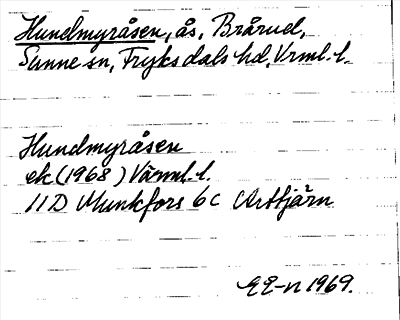 Hundmyråsen, ås, Brårud,
Sunne sn, Fryksdals hd, Vrml. l.
Hundmyråsen
ek (1968) Värml. l.
11D Munkfors 6c Arttjärn
EE-n 1969.